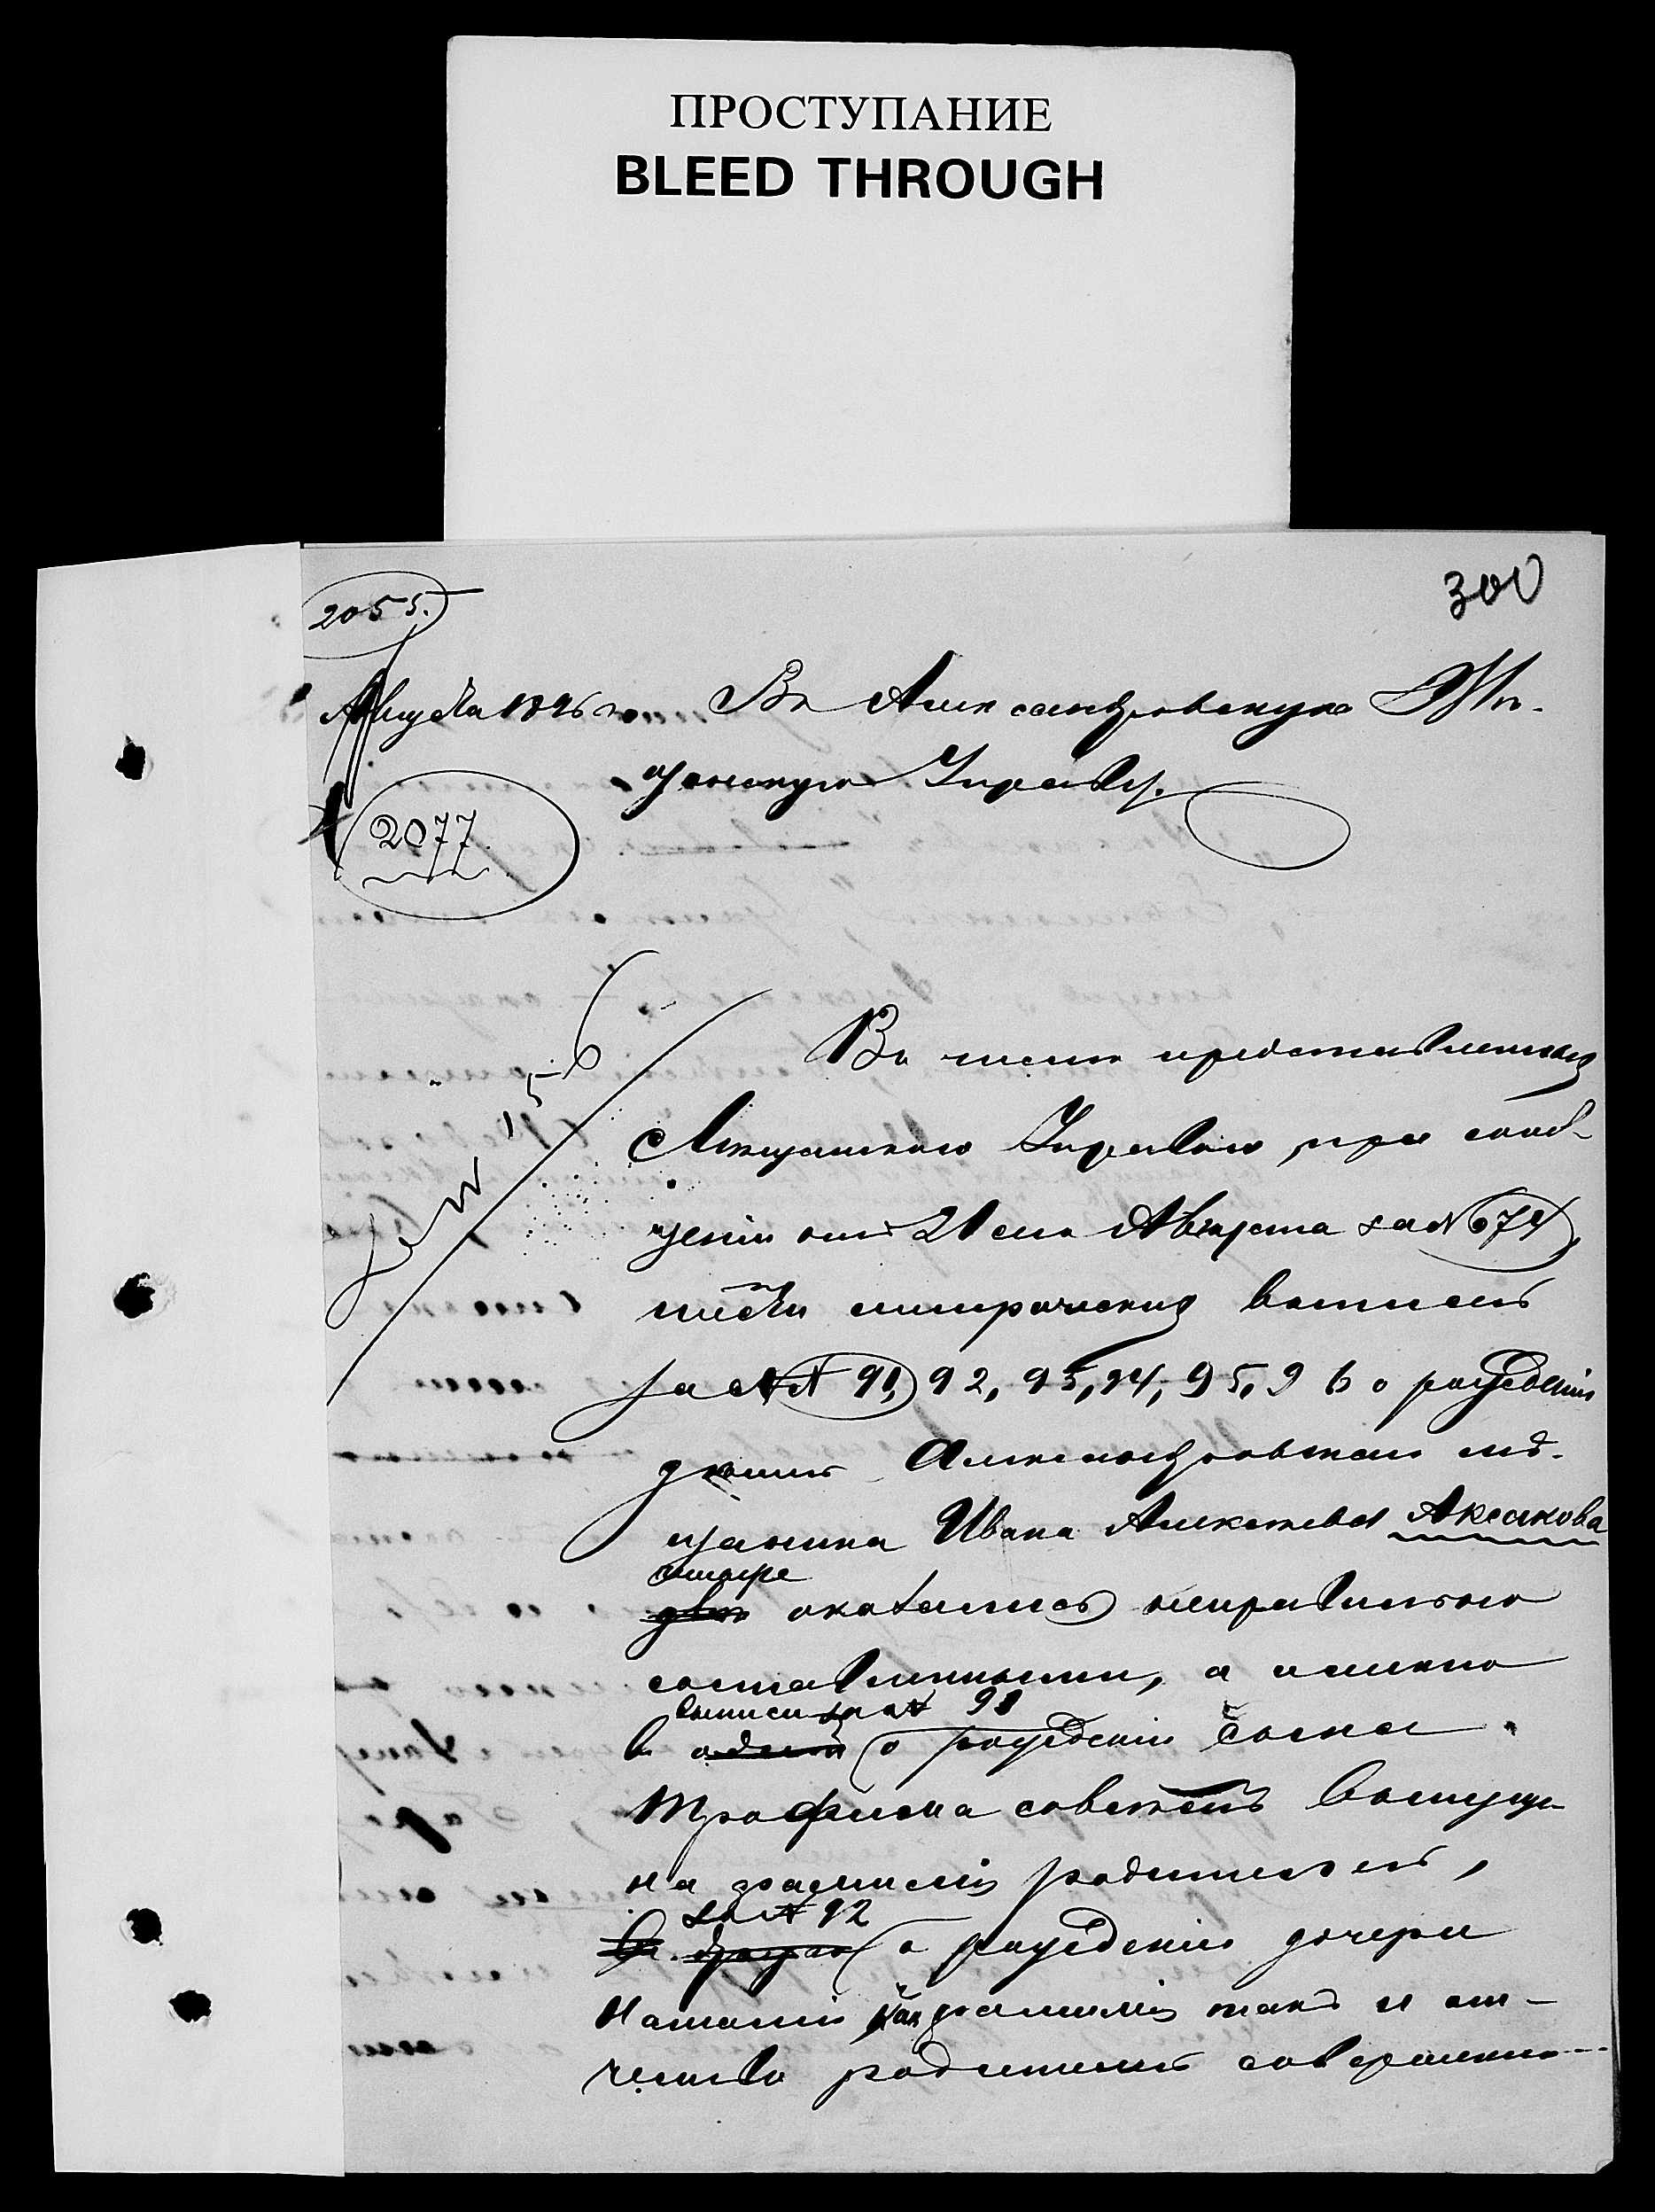 ПРОСТУПАНИЕ
BLEED THROUGH
300
2055.
Августа 1896 го
2077
Въ Александровскую Мѣ-
щанскую Управу.
Въ числѣ представленныхъ
Мѣщанскою Управою, при сооб-
щеніи отъ 21 сего Августа за № 674,
шести метрическихъ выписей
за №№ 91, 92, 93, 94, 95, 96 о рожденіи
дѣтей Александровскаго мѣ-
щанина Ивана Алексѣева Аксакова
четыре
двѣ оказались неправильно
составленными, а именно
выписи за № 91
въ одной о рожденіи сына
Трофима совсѣмъ выпуще-
на фамилія родителей,
за № 92
въ другой о рожденіи дочери
Наталіи какъ фамилія такъ и от-
чество родителей совершенно